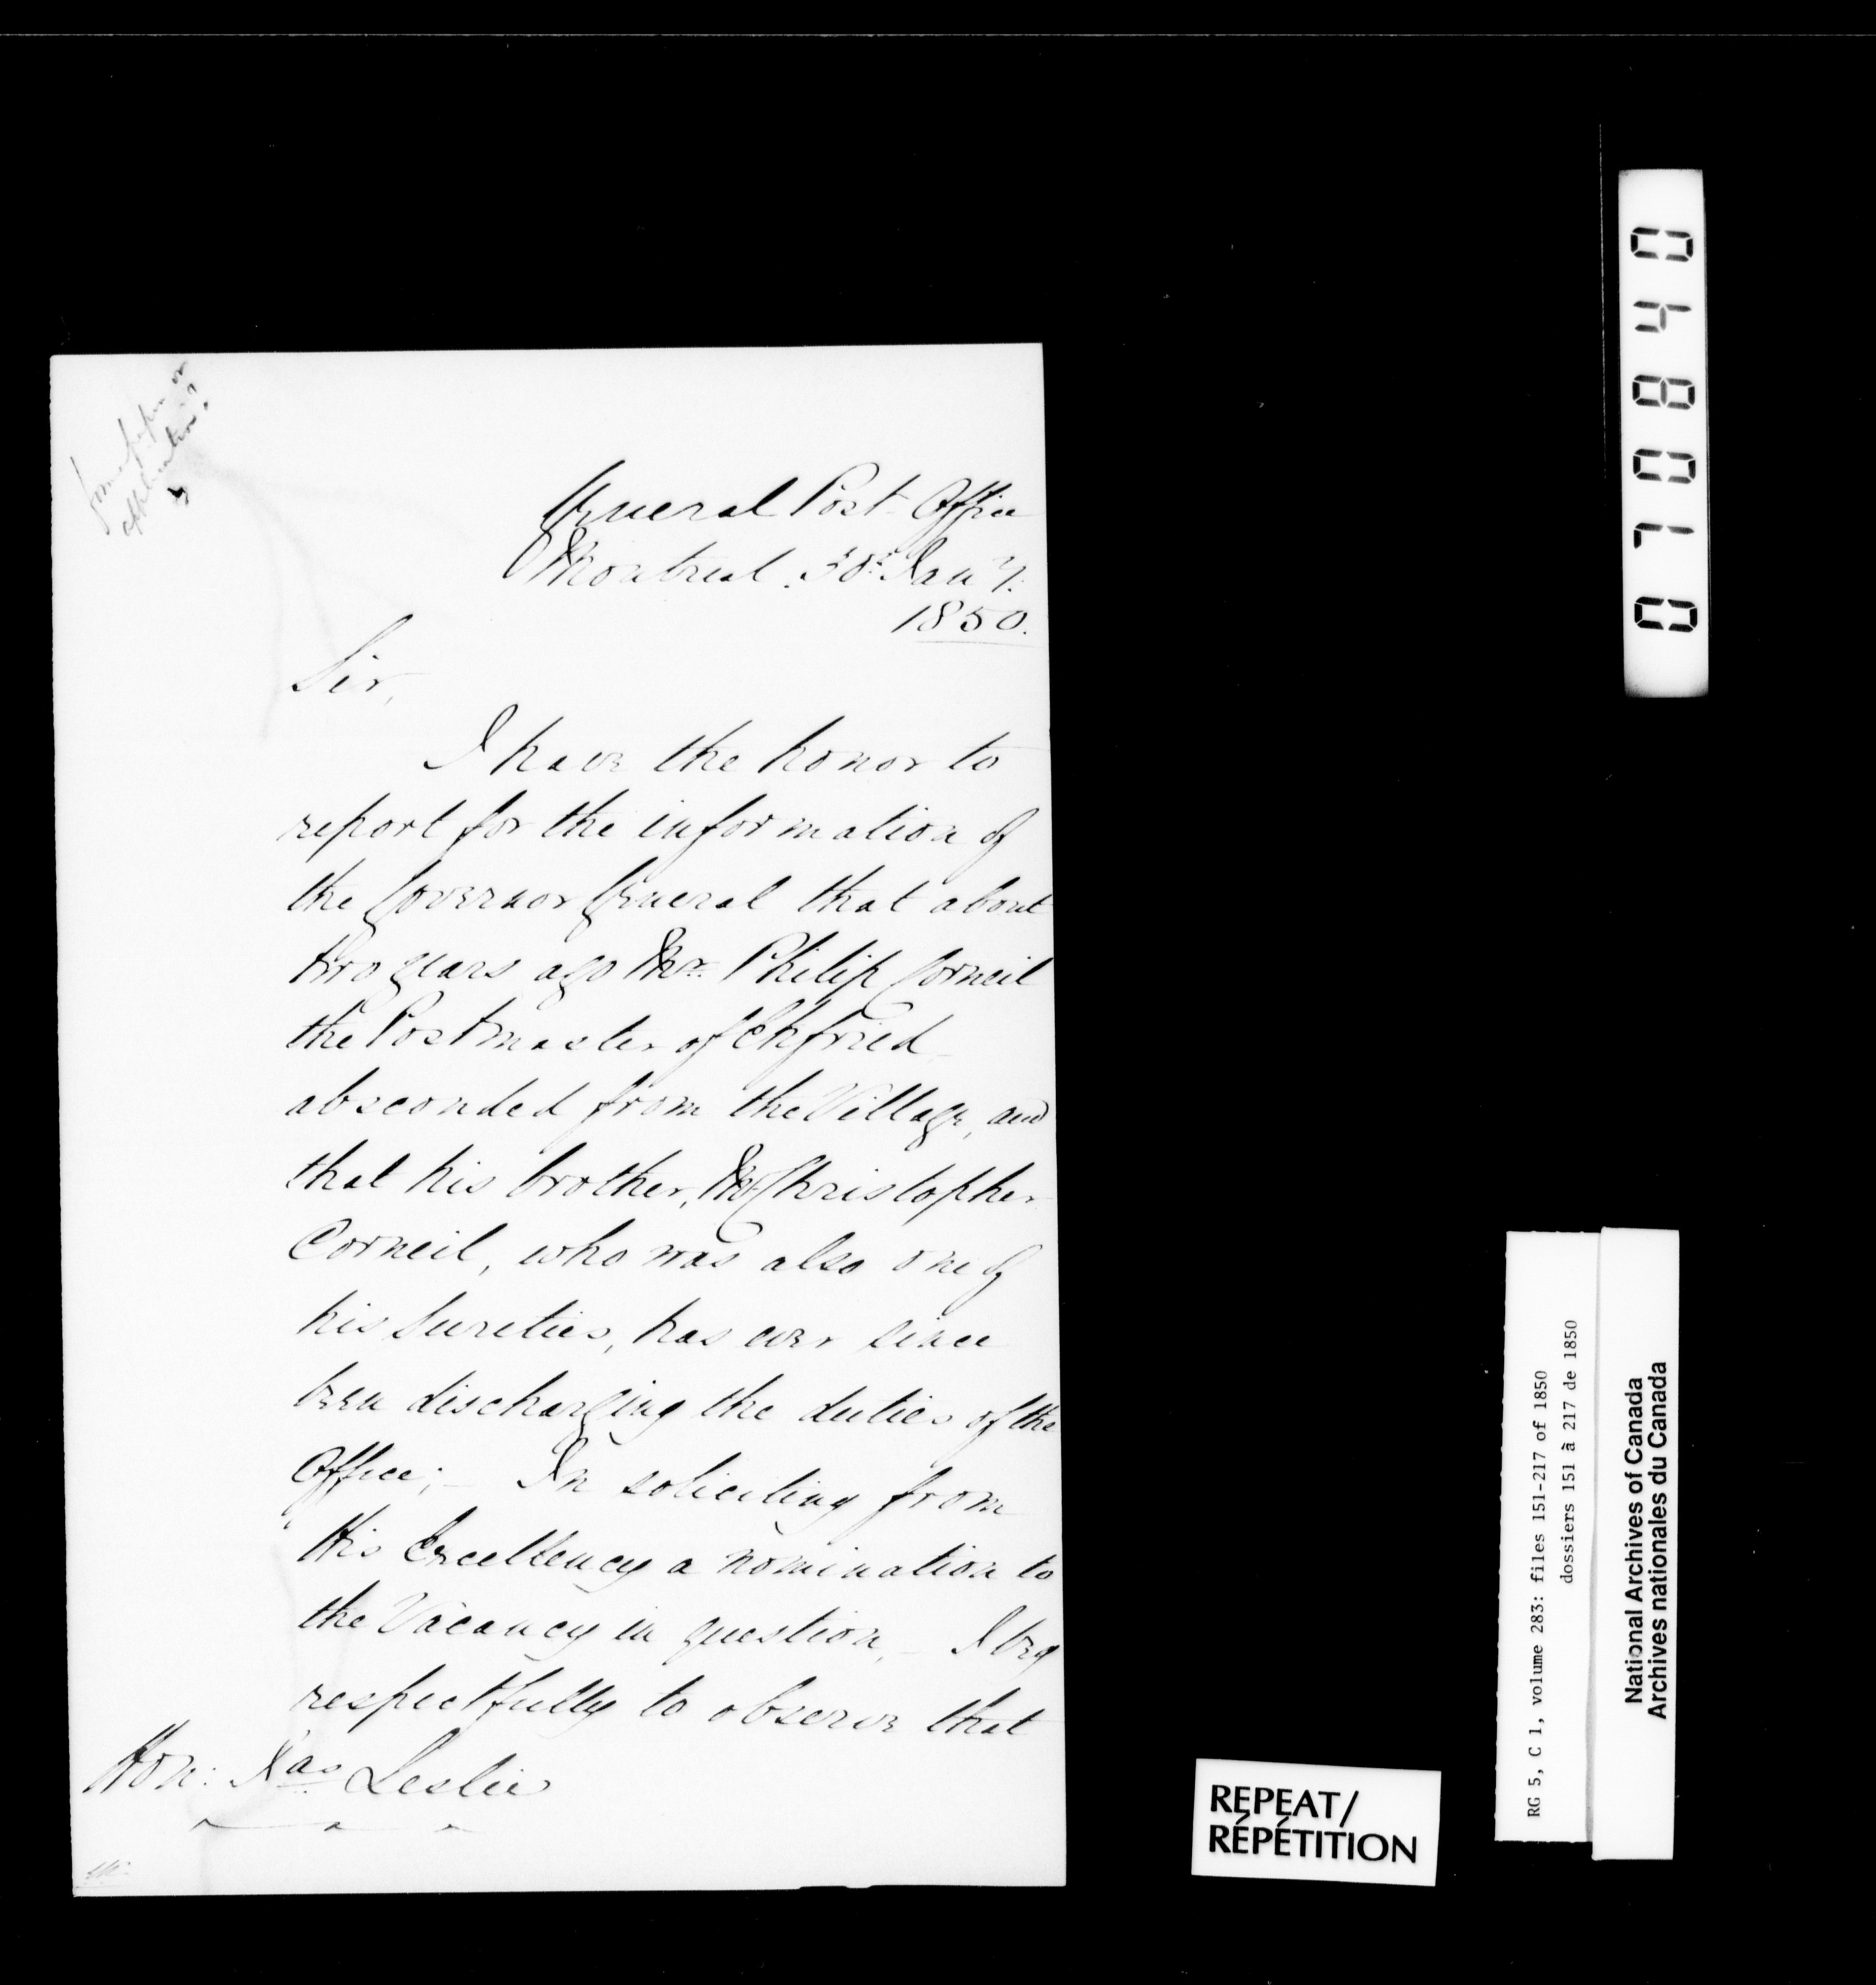 some paper or
application?
General Post Office
Montreal. 30th Jany.
1850.
Sir,
I have the honor to
report for the information of
the Governor General that about
two years ago Mr. Philip Corneil
the Postmaster of Ekfried
absconded from the Village, and
that his brother, Mr Christopher
Corneil, who was also one of
his Sureties, has ever since
been discharging the duties of the
Office;— In soliciting from
His Excellency a nomination to
the Vacancy in question,— I beg
respectfully to observe that
Hon: Jas Leslie
014840
RG 5, C 1, volume 283: files 151-217 of 1850
dossiers 151 à 217 de 1850
National Archives of Canada
Archives nationales du Canada
REPEAT/
RÉPÉTITION